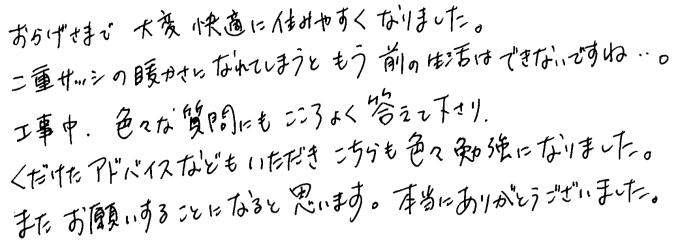 おらげさまで 大変 快適に住みやすくなりました。
二重サッシの暖かさになれてしまうともう前の生活はできないですね‥。
工事中、色々な質問にもこころよく答えて下さり、
くだけたアドバイスなどもいただきこちらも色々勉強になりました。
またお願いすることになると思います。本当にありがとうございました。